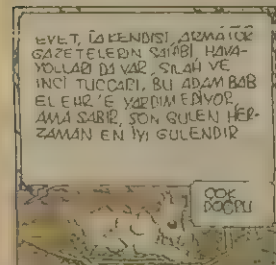 EVET, TA KENDİSİ, ARMATÖR
GAZETELERİN SAHİBİ, HAVA-
YOLLARI DA VAR, SİLAH VE
İNCİ TÜCCARI, BU ADAM BAB
EL EHR'E YARDIM EDİYOR,
AMA SABIR, SON GÜLEN HER-
ZAMAN EN İYİ GÜLENDİR
ÇOK
DOĞRU